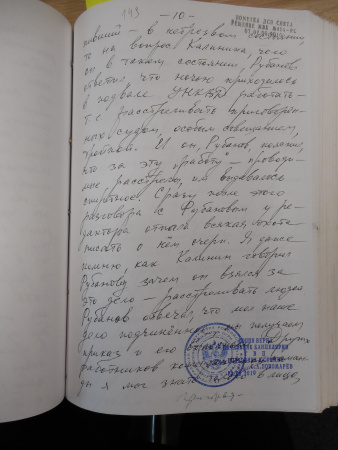 143
- 10 -
ПОМЕТКА ДСП СНЯТА
пивший – в нетрезвом состоянии,
то на вопрос Калинина, чего
он в таком состоянии, Рубанов
ответил что ночью приходилось
в подвале УНКВД работать –
т.е. расстреливать приговорен-
ных судом, особым совещанием,
тройкой. И он, Рубанов пояснил,
что за эту "работу" – проводи-
мые расстрелы, им выдавалось
спиртное. Сразу после этого
разговора с Рубановым у ре-
дактора отпала всякая охота
писать о нём очерк. Я даже
помню, как Калинин говорил
Рубанову зачем он взялся за
это дело – расстреливать людей
Рубанов отвечал, что мол наше
дело подчинённое, получаем
приказ и его Других
работников
ды я мог знать в лицо,